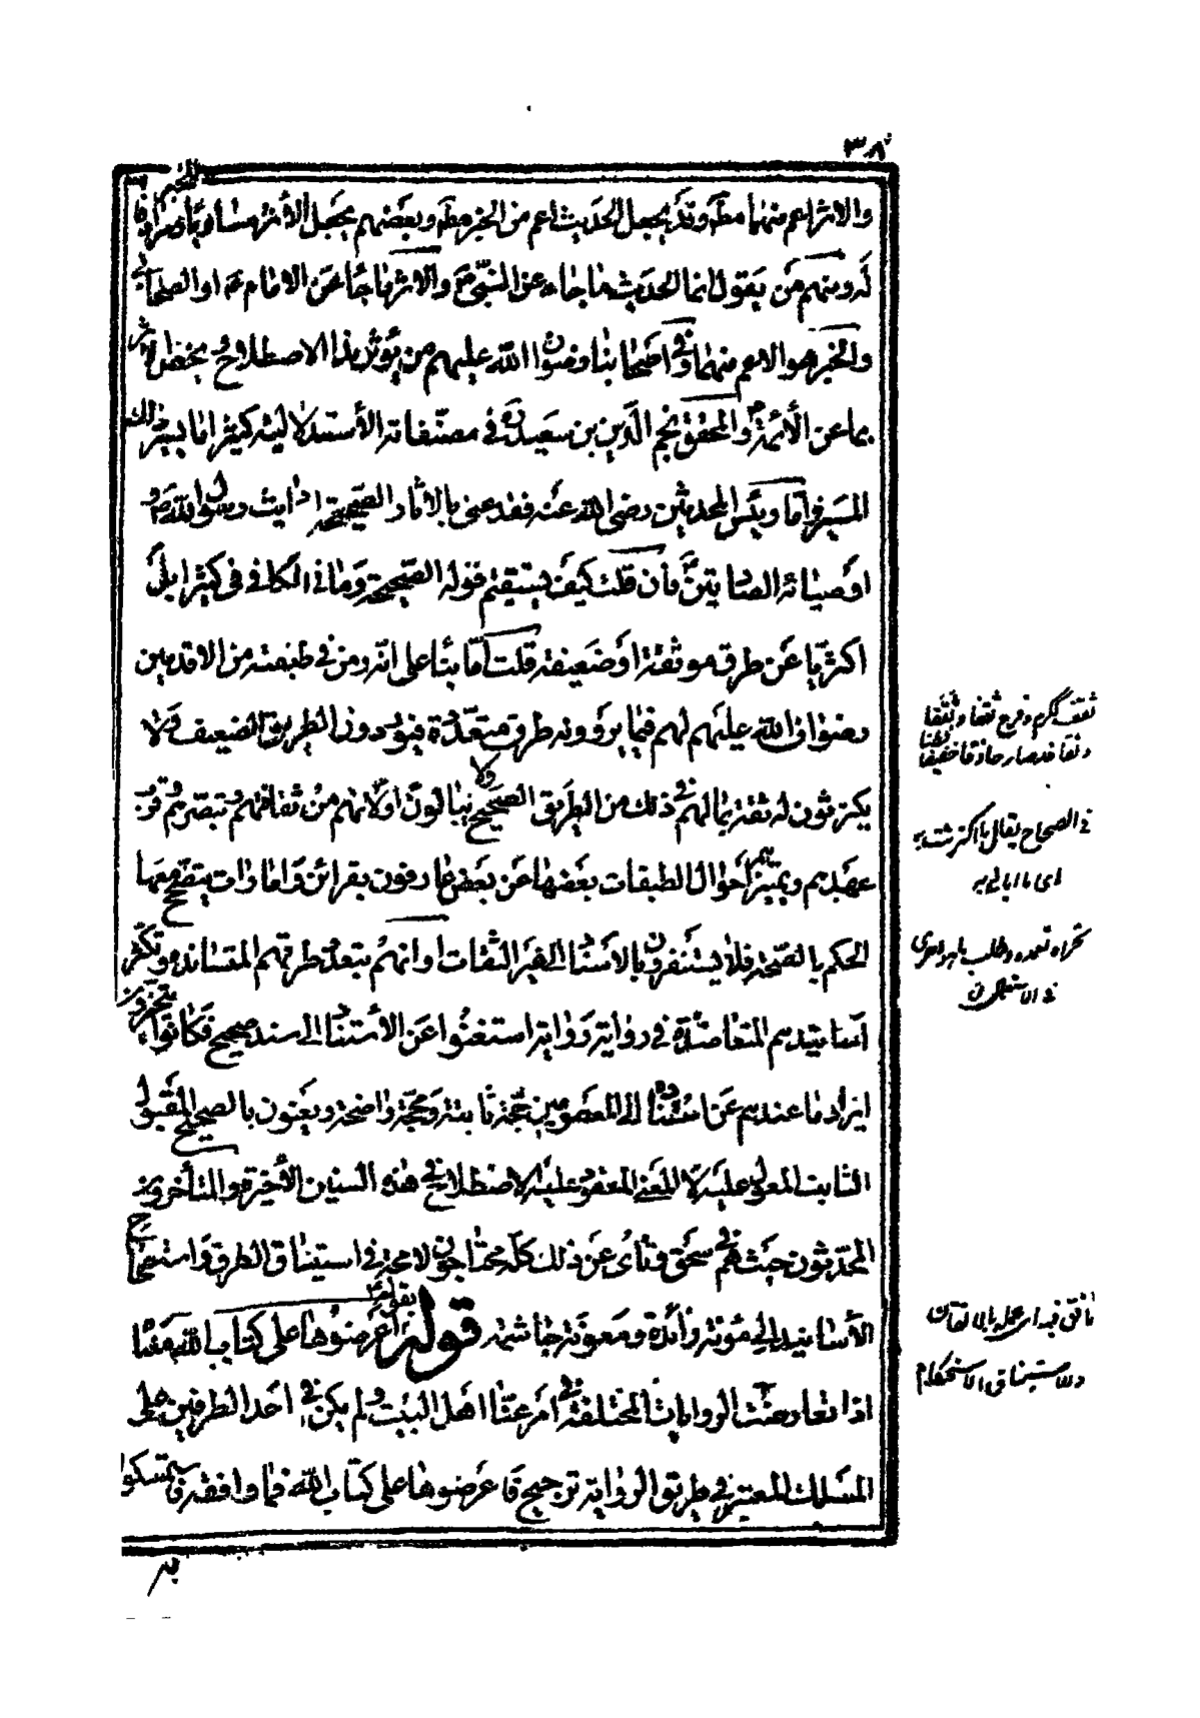 ٣٨
والاثر اعم منهما مطـ وقد يجعل الحديث اعم من الخبر مطـ وبعضهم يجعل الأثر مساويا
له ومنهم من يقول انما الحديث ما جاء عن النبي ص والاثر ما جاء عن الامام ع او الصحابي
والخبر هو الاعم منهما وفي اصحابنا رضوان الله عليهم من يؤثر هذا الاصطلاح يخص الاثر
بما عن الأئمة والمحقق نجم الدين بن سعيد في مصنفاته الأستدلالية كثيرا ما يسير ذلك
المسير واما رئيس المحدثين رضي الله عنه فقد عنى بالاثار الصحيحة احاديث رسول الله ص و
اوصيائه الصادقين فان قلت كيف يستقيم قوله الصحيحة وما في الكافي في كثير بل
اكثريا عن طرق موثقة او ضعيفة قلت اما بناء على انه ومن في طبقته من الاقدمين
رضوان الله عليهم لهم فيما يروونه طرق متعددة فيوردون الطريق الضعيف ولا
يكترثون له ثقة بما لهم في ذلك من الطريق الصحيح ولا يبالون او لانهم من ثقافتهم وتبصرهم وقرب
عهدهم وتمييزهم احوال الطبقات بعضها عن بعض عارفون بقرائن وامارات يتضح معها
الحكم بالصحة فلا يستنفرون بالأسناد الى غير الثقات او انهم بتعدد طرقهم المتساندة وتكثر
اسانيدهم المتعاضدة في رواية رواية استغنوا عن الأستناد الى سند صحيح فكانوا يتحرون
ايراد ما عندهم عن استناده الى المعصومين حجة ثابتة ومحجة واضحة ويعنون بالصحيح المقبول
الثابت المعول عليه لا المعنى المعقود عليه الاصطلاح في هذه السنين الأخيرة والمتأخرون
المحدثون حيث هم في سحق وتناء عن ذلك كله محتاجون لا محة في استيناق الطرق واستصحاح
الأسانيد الى مؤنة زائدة ومعونة جاشمة قوله بقوله ع اعرضوها على كتاب الله معناه
اذا تعارضت الروايات المختلفة في امر عنا اهل البيت ولم يكن في احد الطرفين على
المسلك المعتبر في طريق الرواية ترجيح فاعرضوها على كتاب الله فما وافقه فتمسكوا
به
ثقف ككرم وفرح ثقفا وثقفا
وثقافة صار حاذقا خفيفا فطنا
في الصحاح يقال ما اكترث به
اي ما ابالي به
تحراه تعمده وطلب ما هو احرى
في الاستعمال
تأنق فيه اي عمله بالاتقان
والاستيناق الاستحكام